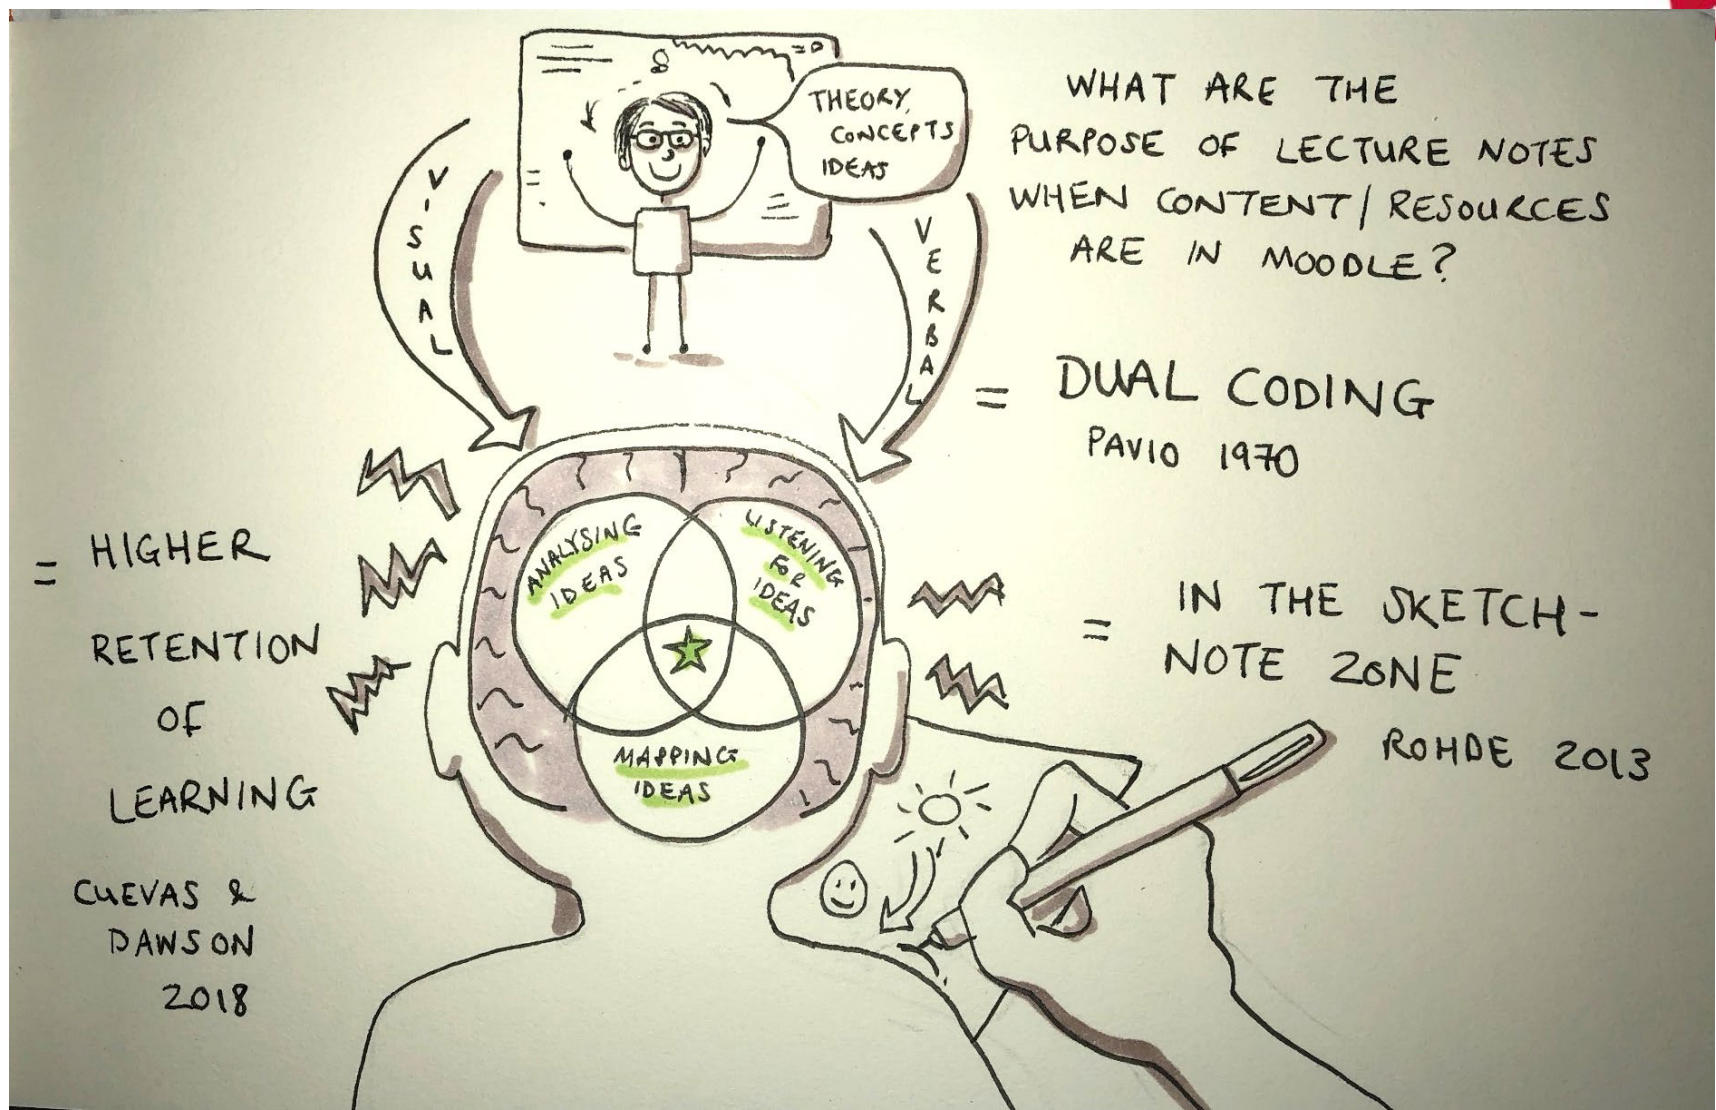 THEORY,
CONCEPTS
IDEAS
WHAT ARE THE
PURPOSE OF LECTURE NOTES
WHEN CONTENT/RESOURCES
ARE IN MOODLE?
VISUAL
VERBAL
= DUAL CODING
PAVIO 1970
ANALYSING
IDEAS
LISTENING
FOR
IDEAS
MAPPING
IDEAS
= HIGHER
RETENTION
OF
LEARNING
CUEVAS &
DAWSON
2018
= IN THE SKETCH-
NOTE ZONE
ROHDE 2013